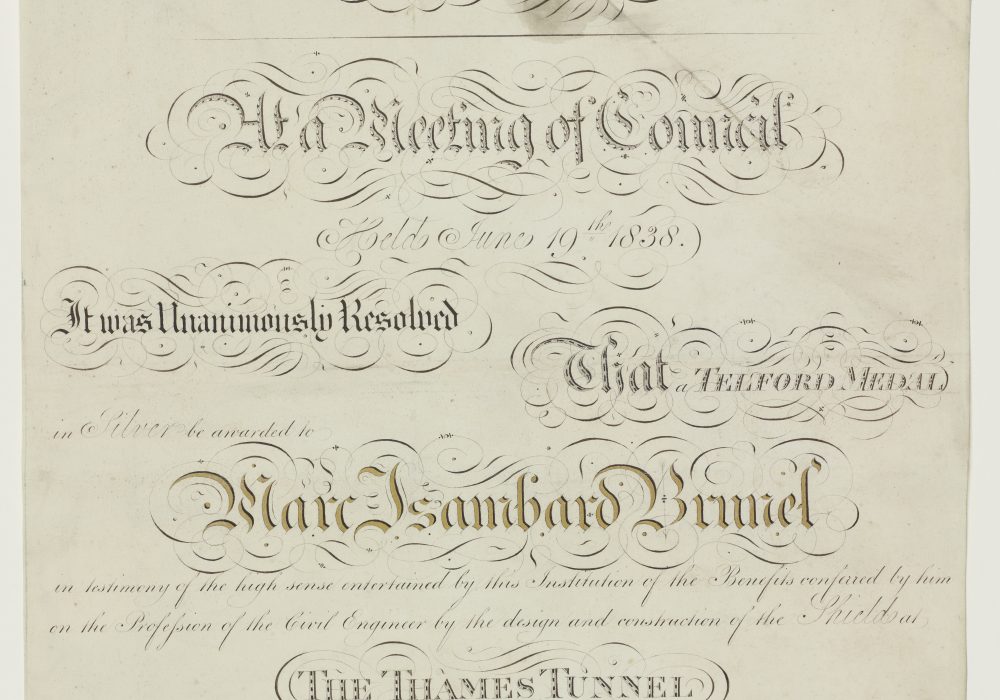 At a Meeting of Council
Held June 19th 1838.
It was Unanimously Resolved
That a TELFORD MEDAL
in Silver be awarded to
Marc Isambard Brunel
in testimony of the high sense entertained by this Institution of the Benefits conferred by him
on the Profession of the Civil Engineer by the design and construction of the Shield at
THE THAMES TUNNEL